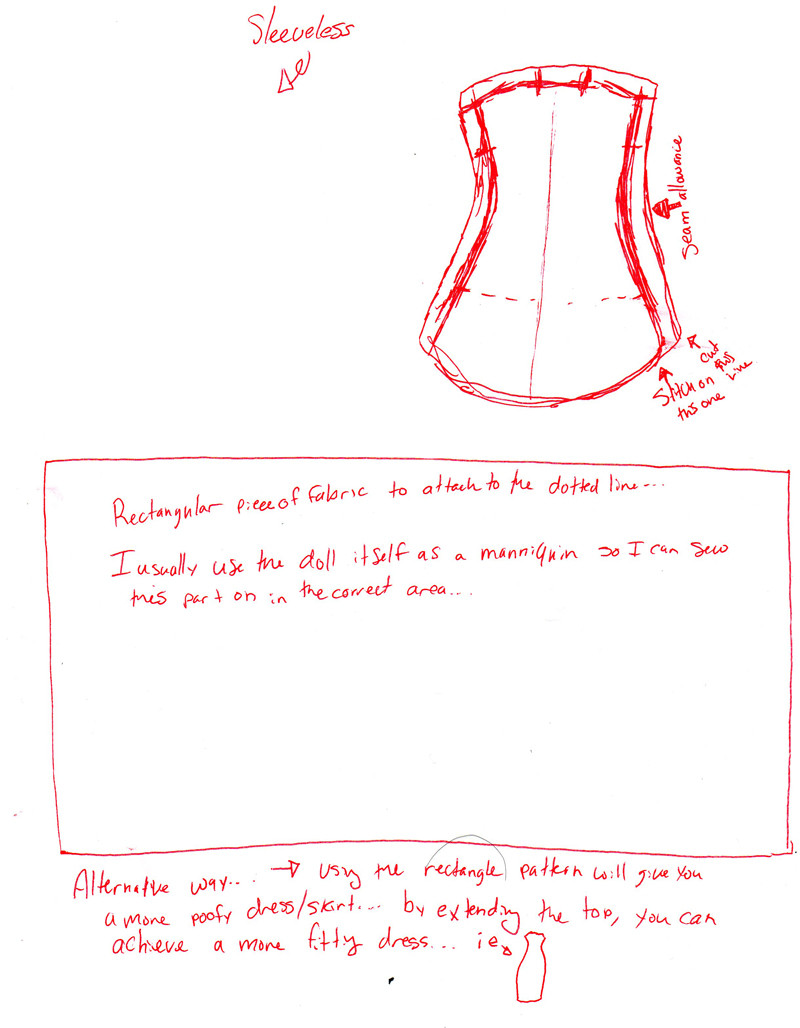 Sleeveless
seam allowance
cut
this
line
Stitch on
this one
Rectangular piece of fabric to attach to the dotted line...
I usually use the doll itself as a manniquin so I can sew
this part on in the correct area...
Alternative way... → Using the rectangle pattern will give you
a more poofy dress/skirt... by extending the top, you can
achieve a more fitty dress... ie